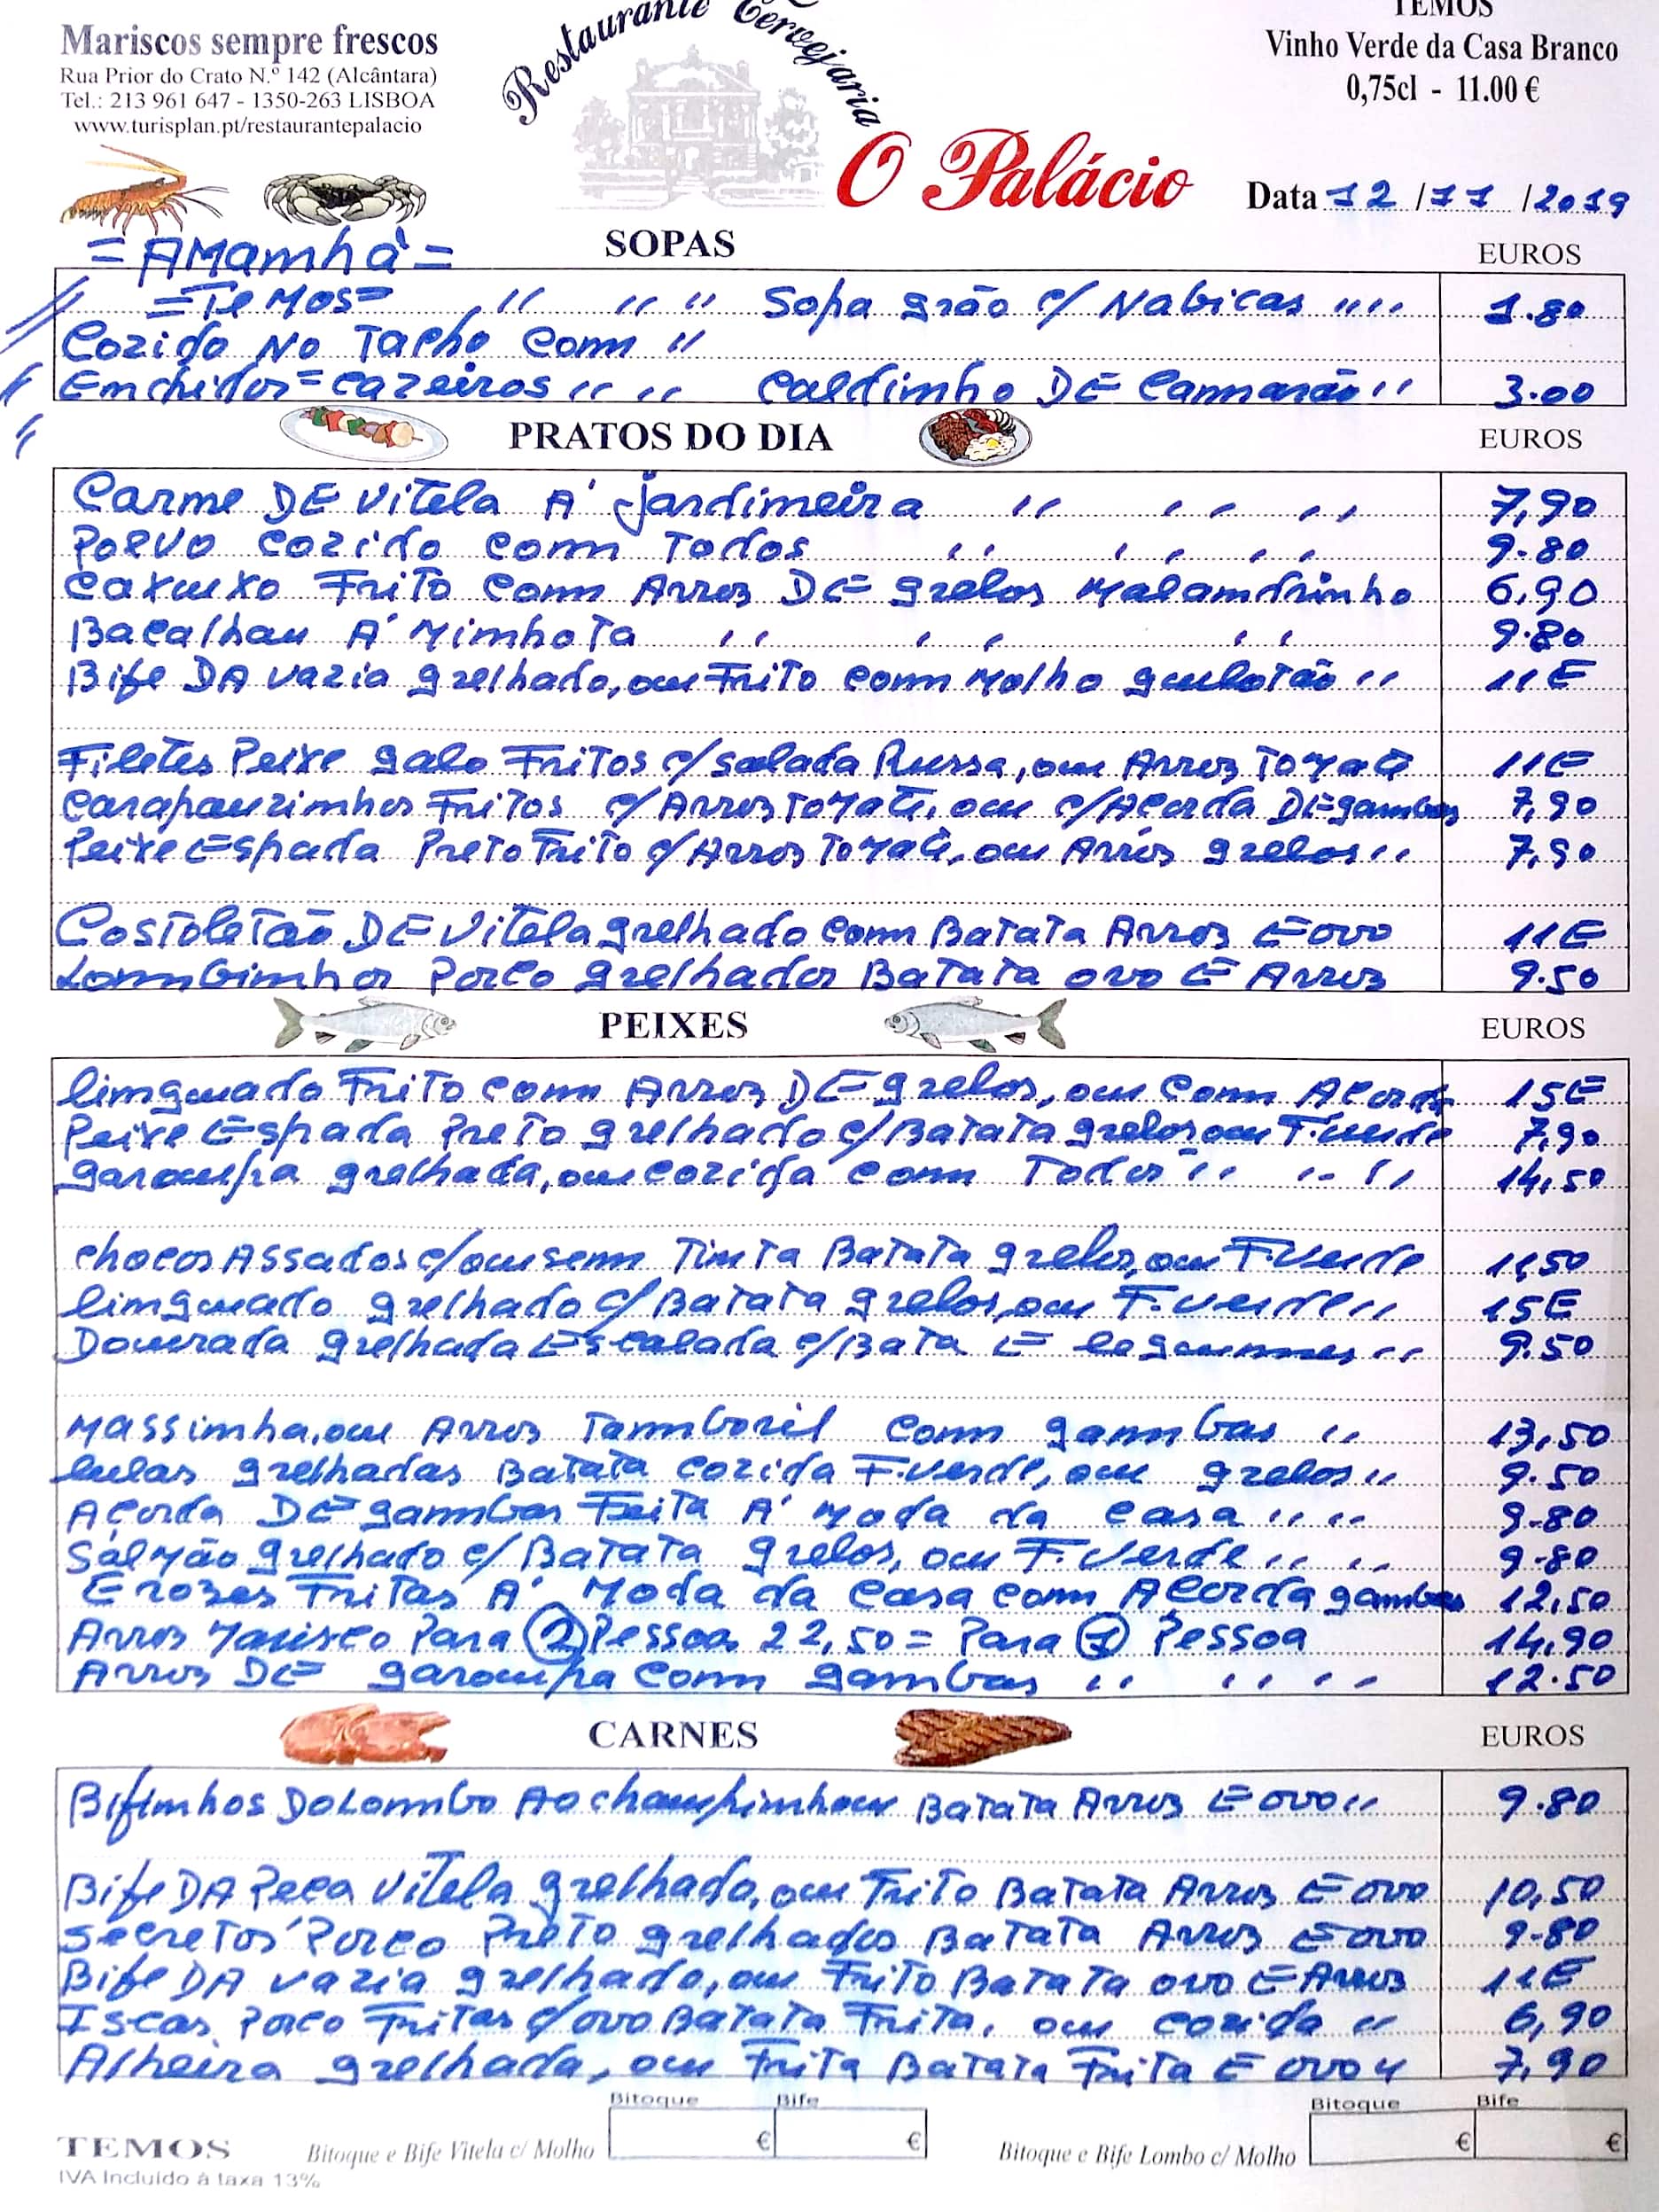 Mariscos sempre frescos
Rua Prior do Crato N.º 142 (Alcântara)
Tel.: 213 961 647 - 1350-263 LISBOA
www.turisplan.pt/restaurantepalacio
Restaurante Cervejaria
O Palácio
TEMOS
Vinho Verde da Casa Branco
0,75cl - 11.00 €
Data 12 /11 /2019
= AMamhã =
SOPAS EUROS
=TeMos= '' '' '' Sopa grão c/ Nabicas '' '' 1.80
Cozido No Tacho Com ''
Enchidos = cazeiros '' '' Caldinho DE Camarão '' 3.00
PRATOS DO DIA EUROS
Carne DE Vitela A' jardineira 7,90
Polvo Cozido Com Todos 9.80
Caxuxo Frito Com Arroz DE grelos Malamdrinho 6,90
Bacalhau A' Minhota 9.80
Bife DA vazia grelhado, ou Frito Com Molho gulotão '' 11E
Filetes Peixe galo Fritos c/ Salada Russa, ou Arroz Tomate 11E
Carapauzinhos Fritos c/ Arroz Tomate, ou c/ Açorda DE gambas 7,90
Peixe Espada Preto Frito c/ Arroz Tomate, ou Arroz grelos '' 7,90
Costoletão DE Vitela grelhado Com Batata Arroz E ovo 11E
Lombinhos Porco grelhados Batata ovo E Arroz 9.50
PEIXES EUROS
linguado Frito Com Arroz DE grelos, ou Com Açorda 15E
Peixe Espada Preto grelhado c/ Batata grelos ou F. verde 7,90
garoupa grelhada, ou cozida Com Todos '' 14,50
chocos Assados c/ ou sem Tinta Batata grelos, ou F. Verde 11,50
linguado grelhado c/ Batata grelos, ou F. verde '' 15E
Dourada grelhada Escalada c/ Bata E legumes '' 9.50
Massinha, ou Arroz Tamboril Com gambas '' 13,50
lulas grelhadas Batata cozida F. verde, ou grelos '' 9.50
Açorda DE gambas Feita A' Moda da Casa '' '' 9.80
Salmão grelhado c/ Batata grelos, ou F. Verde '' '' 9.80
Erozes Fritas A' Moda da Casa Com Açorda gambas 12,50
Arroz Marisco Para 2 Pessoa 22,50 = Para 1 Pessoa 14,90
Arroz DE garoupa Com gambas '' '' 12.50
CARNES EUROS
Bifinhos Do Lombo Ao champinhou Batata Arroz E ovo '' 9.80
Bife DA Peça Vitela grelhado, ou Frito Batata Arroz E ovo 10,50
Secretos Porco Preto grelhados Batata Arroz E ovo 9.80
Bife DA vazia grelhado, ou Frito Batata ovo E Arroz 11E
Iscas Porco Fritas c/ ovo Batata Frita, ou cozida '' 6,90
Alheira grelhada, ou Frita Batata Frita E ovo '' 7,90
TEMOS
IVA Incluído à taxa 13%
Bitoque e Bife Vitela c/ Molho
Bitoque € Bife €
Bitoque e Bife Lombo c/ Molho
Bitoque € Bife €